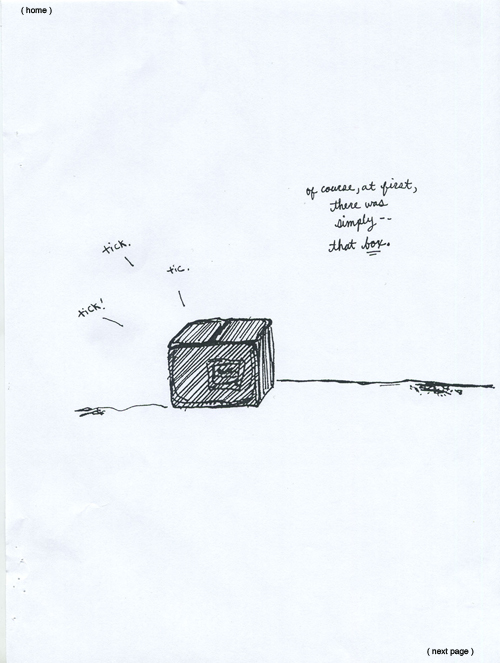 ( home )
of course, at first,
there was
simply --
that box.
tick.
tic.
tick!
( next page )